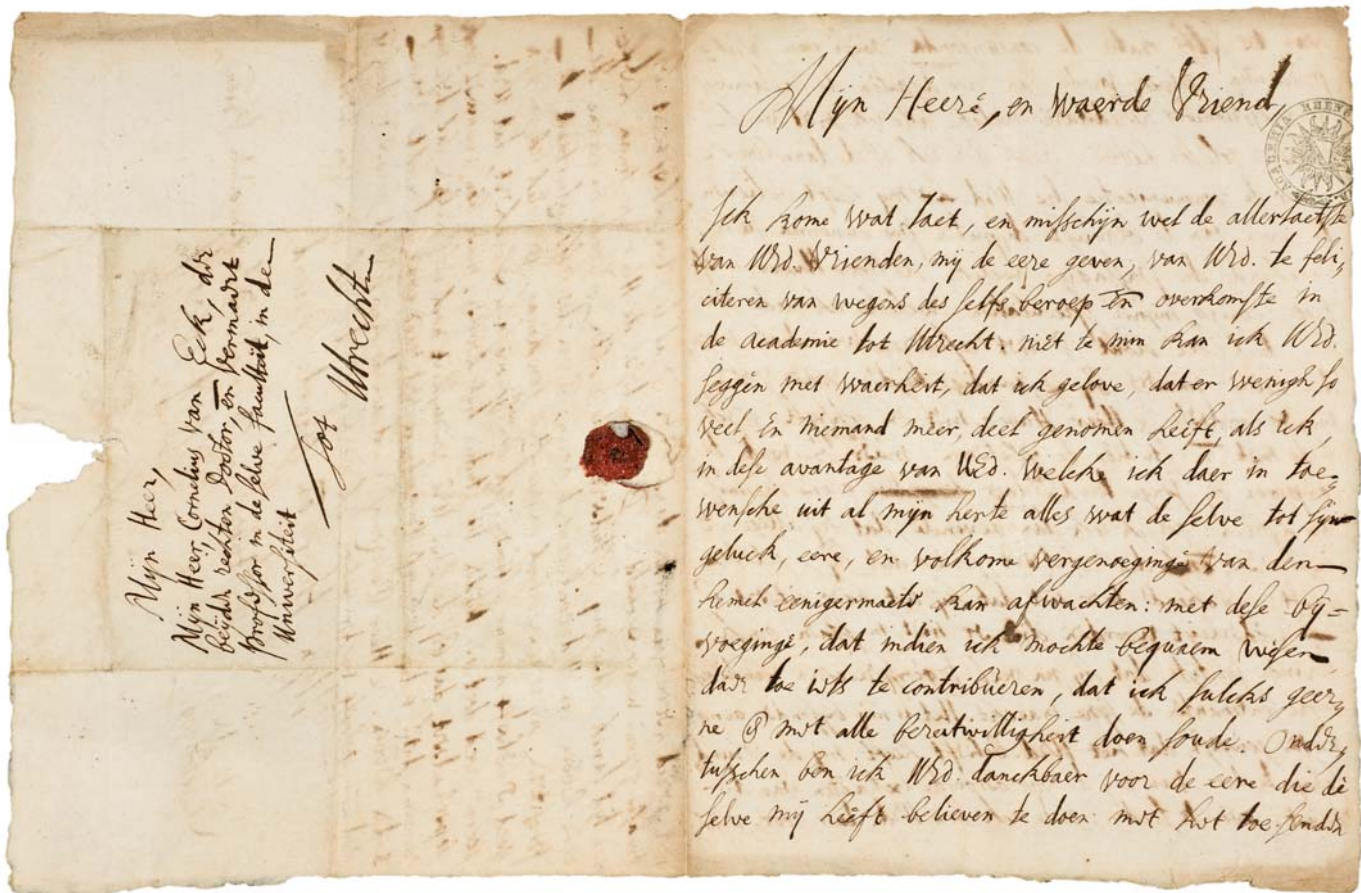 Mijn Heer,
Mijn Heer Cornelius van Eck,
beijder rechten Doctor, en vermaert
professor in de selve faculteit, in de
Universiteit
tot Utrecht
Mijn Heere, en waerde Vriend,
ACADEMIA RHENO
Ick kome wat laet, en misschijn wel de allerlaetste
van UEd. vrienden, mij de eere geven, van UEd. te feli„
citeren van wegens des selfs beroep en overkomste in
de academie tot Utrecht. niet te min kan ick UEd.
seggen met waerheit, dat ick gelove, dat er wenigh so
veel en niemand meer, deel genomen heeft, als ick
in dese avantage van UEd. welcke ick daer in toe„
wensche uit al mijn herte alles wat de selve tot sijn
geluck, eere, en volkome vergenoeginge van den
hemel eenigermaets kan afwachten: met dese bij=
voeginge, dat indien ick mochte bequaem wesen
daer toe iets te contribueren, dat ick sulcks geer„
ne & met alle bereitwilligheit doen soude. Onder„
tusschen ben ick UEd. danckbaer voor de eere die de
selve mij heeft believen te doen met het toe senden